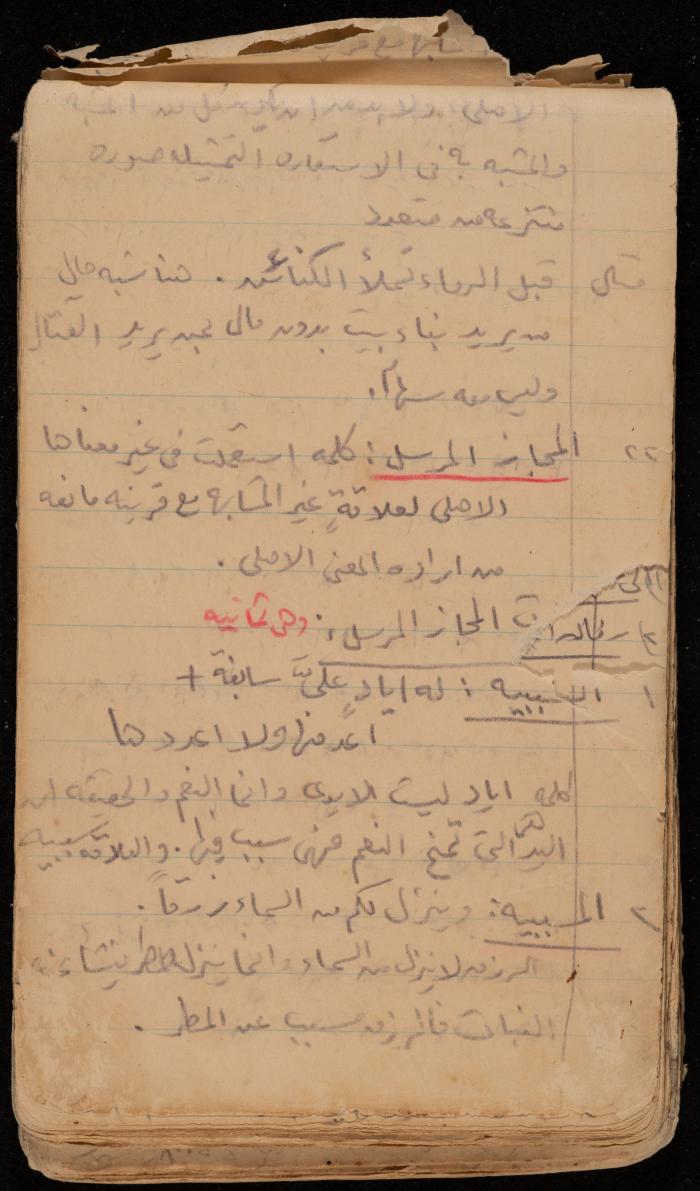 الاصلي. ولا بد من ان يكون كل من المشبه
والمشبه به في الاستعاره التمثيليه صوره
منتزعه من متعدد
مثال قبل الرماء تملأ الكنائن. هنا شبه حال
من يريد بناء بيت بدون مال بمن يريد القتال
وليس معه سهام.
٢٢ المجاز المرسل: كلمه استعملت في غير معناها
الاصلي لعلاقةٍ غير المشابهه مع قرينه مانعه
من اراده المعنى الاصلي.
المجاز المرسل: وهي ثمانيه
١ السببيه: له ايادٍ عليَّ سابغة +
أعد منها ولا اعددها
كلمه اياد ليست الايدي وانما النعم والحقيقه ان
اليد هي التي تمنح النعم فهي سبب فيها. والعلاقة سببيه
٢ المسببيه: وينزل لكم من السماء رزقاً.
الرزق لا ينزل من السماء وانما ينزل المطر ينشأ عنه
النبات فالرزق مسبب عن المطر.